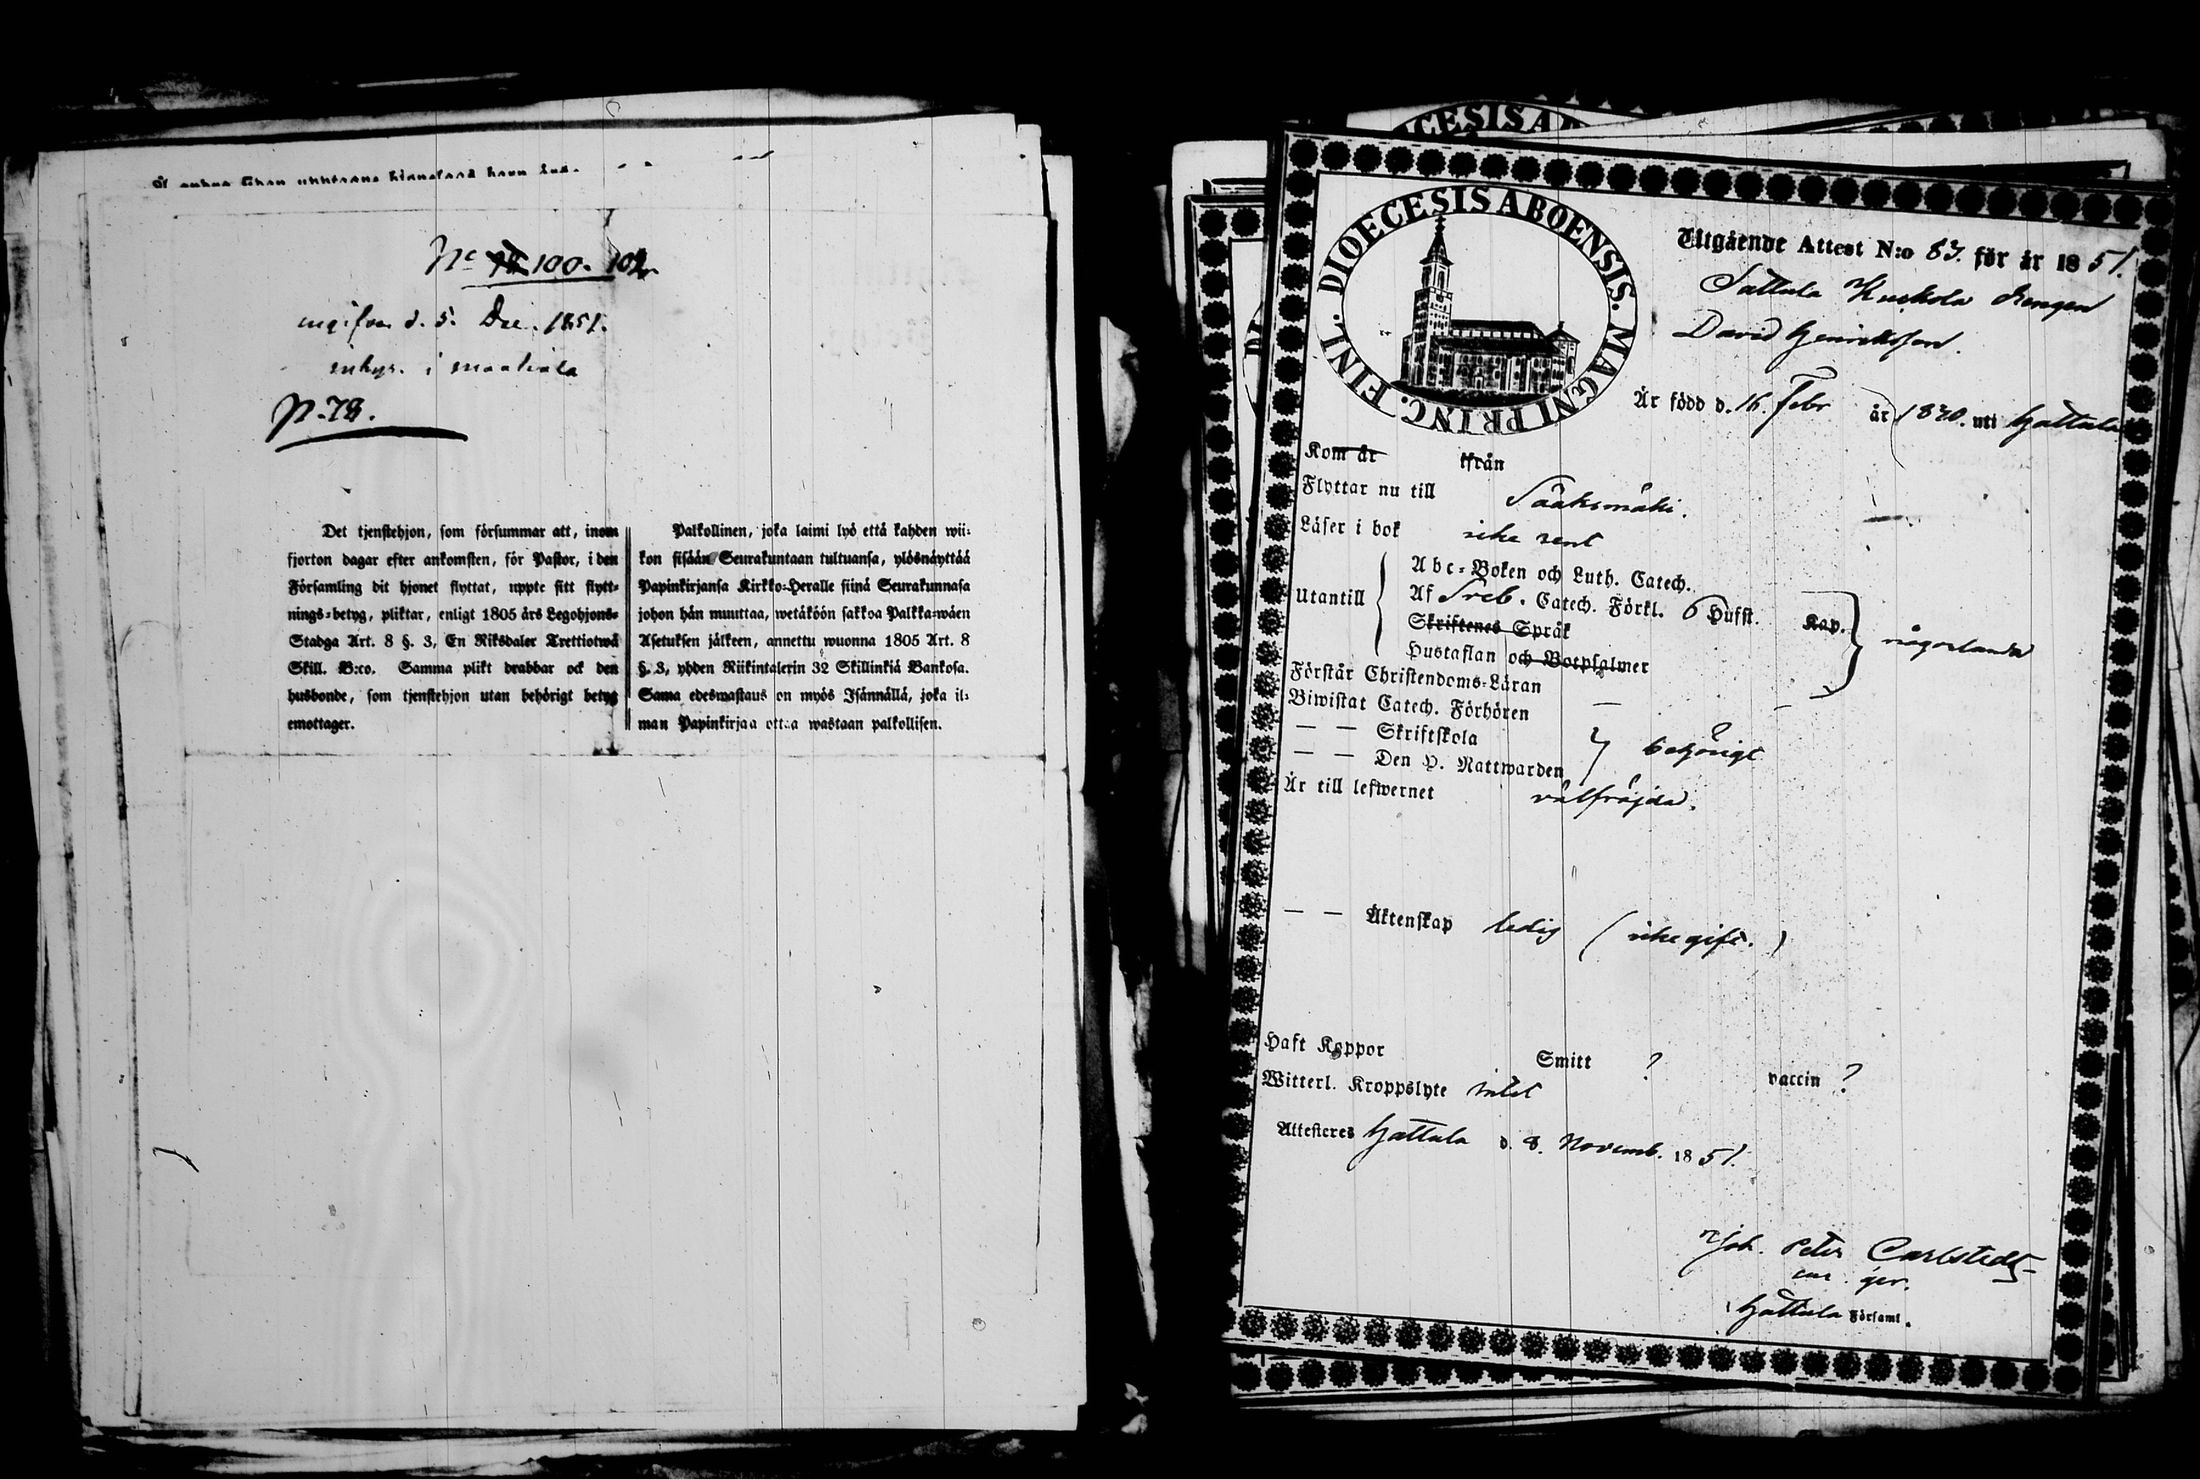 No 100. 102.
ingifven d. 5. Dec. 1851.
inhys. i
p. 78.
Det tjenstehjon, som försummar att, inom
fjorton dagar efter ankomsten, för Pastor, i den
Församling dit hjonet flyttat, uppte sitt flytt-
nings-betyg, pliktar, enligt 1805 års Legohjons-
Stadga Art. 8 §. 3, En Riksdaler Trettiotwå
Skill. B:co. Samma plikt drabbar ock den
husbonde, som tjenstehjon utan behörigt betyg
emottager.
Palkollinen, joka laimi lyö että kahden wii-
kon sisään Seurakuntaan tultuansa, ylösnäyttää
Papinkirjansa Kirkko-Heralle siinä Seurakunnasa
johon hän muuttaa, wetäköön sakkoa Palkka-wäen
Asetuksen jälkeen, annettu wuonna 1805 Art. 8
§. 3, yhden Riikintalerin 32 Skillinkiä Bankosa.
Sama edeswastaus on myös Isännällä, joka il-
man Papinkirjaa ottaa wastaan palkollisen.
DIOECESIS ABOENSIS. MAGNI PRINC. FINL.
Utgående Attest N:o 83. för år 1851.
Sattula Kuskola drengen
David Henriksson.
Är född d. 16. Febr år 1830. uti Hattula
Kom år ifrån
Flyttar nu till Sääksmäki.
Läser i bok icke rent
Utantill
Abc-Boken och Luth. Catech.
Af Sveb. Catech. Förkl. 6 Hufst. Kap.
Skriftenes Språk
Hustaflan och Botpsalmer
någorlunda
Förstår Christendoms-Läran —
Biwistat Catech. Förhören
— — Skriftskola
— — Den H. Nattwarden
behörigt
Är till lefwernet välfräjdad.
— — Äktenskap ledig (icke gift.)
Haft Koppor Smitt ? vaccin ?
Witterl. Kroppslyte intet
Attesteres Hattula d. 8. Novemb. 1851.
Joh. Peter Carlstedt
Hattula Församl.